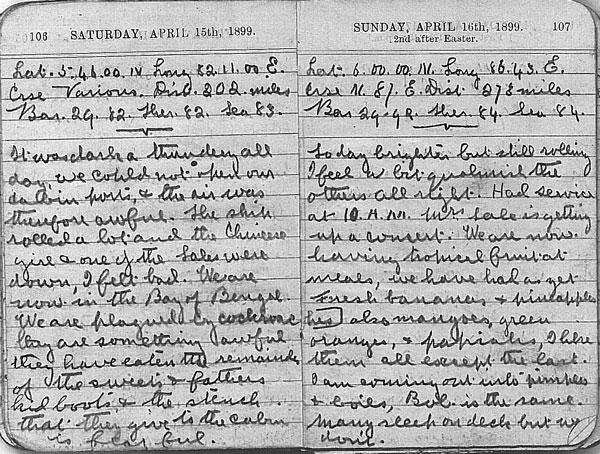 106 SATURDAY, APRIL 15th, 1899.
Lat. 5.46.00. N Long 82.11.00 E.
Crse Various. Dist. 202. miles
Bar. 29. 82. Ther. 82. Sea 83.
It was dark & thundery all
day, we could not open our
cabin ports, & the air was
therefore awful. The ship
rolled a lot and the Chinese
girl & one of the Sales were
down, I felt bad. We are
now in the Bay of Bengal.
We are plagued by cockroac
hes
they are something awful
they have eaten the remainder
of the sweets & fathers
kid boots & the stench
that they give to the cabin
is fearful.
SUNDAY, APRIL 16th, 1899. 107
2nd after Easter.
Lat. 6.00.00. N. Long 86.43. E.
Crse N. 87. E. Dist 273 miles
Bar 29.92. Ther. 84. Sea 84.
To day brighter but still rolling
I feel a bit qualmish the
others all right. Had service
at 10 A.M. Mrs Sale is getting
up a concert. We are now
having tropical fruit at
meals, we have had as yet
Fresh bananas & pineapples
also mangoes, green
oranges, & I like
them all except the last.
I am coming out into pimples
& boils, Bob is the same.
Many sleep on deck but we
don't.